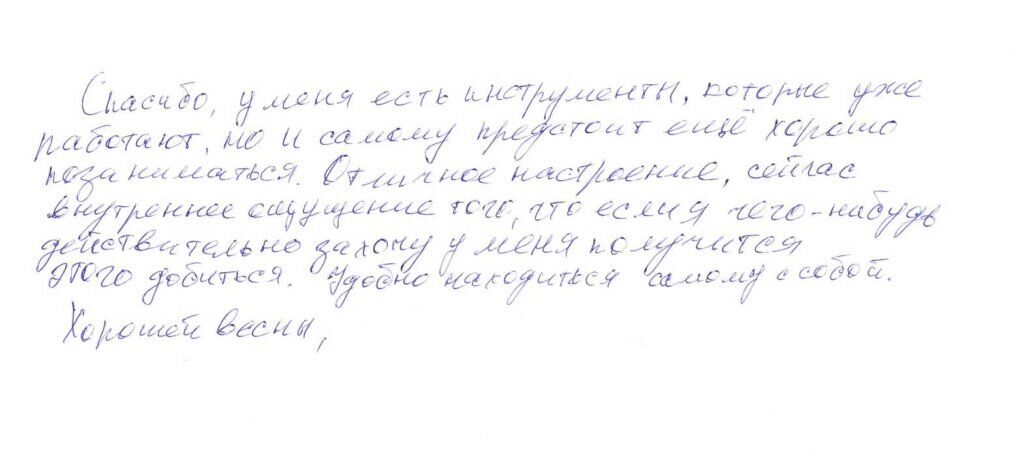 Спасибо, у меня есть инструменты, которые уже
работают, но и самому предстоит ещё хорошо
позаниматься. Отличное настроение, сейчас
внутреннее ощущение того, что если я чего-набудь
действительно захочу у меня получится
этого добиться. Удобно находиться самому с собой.
Хорошей весны,